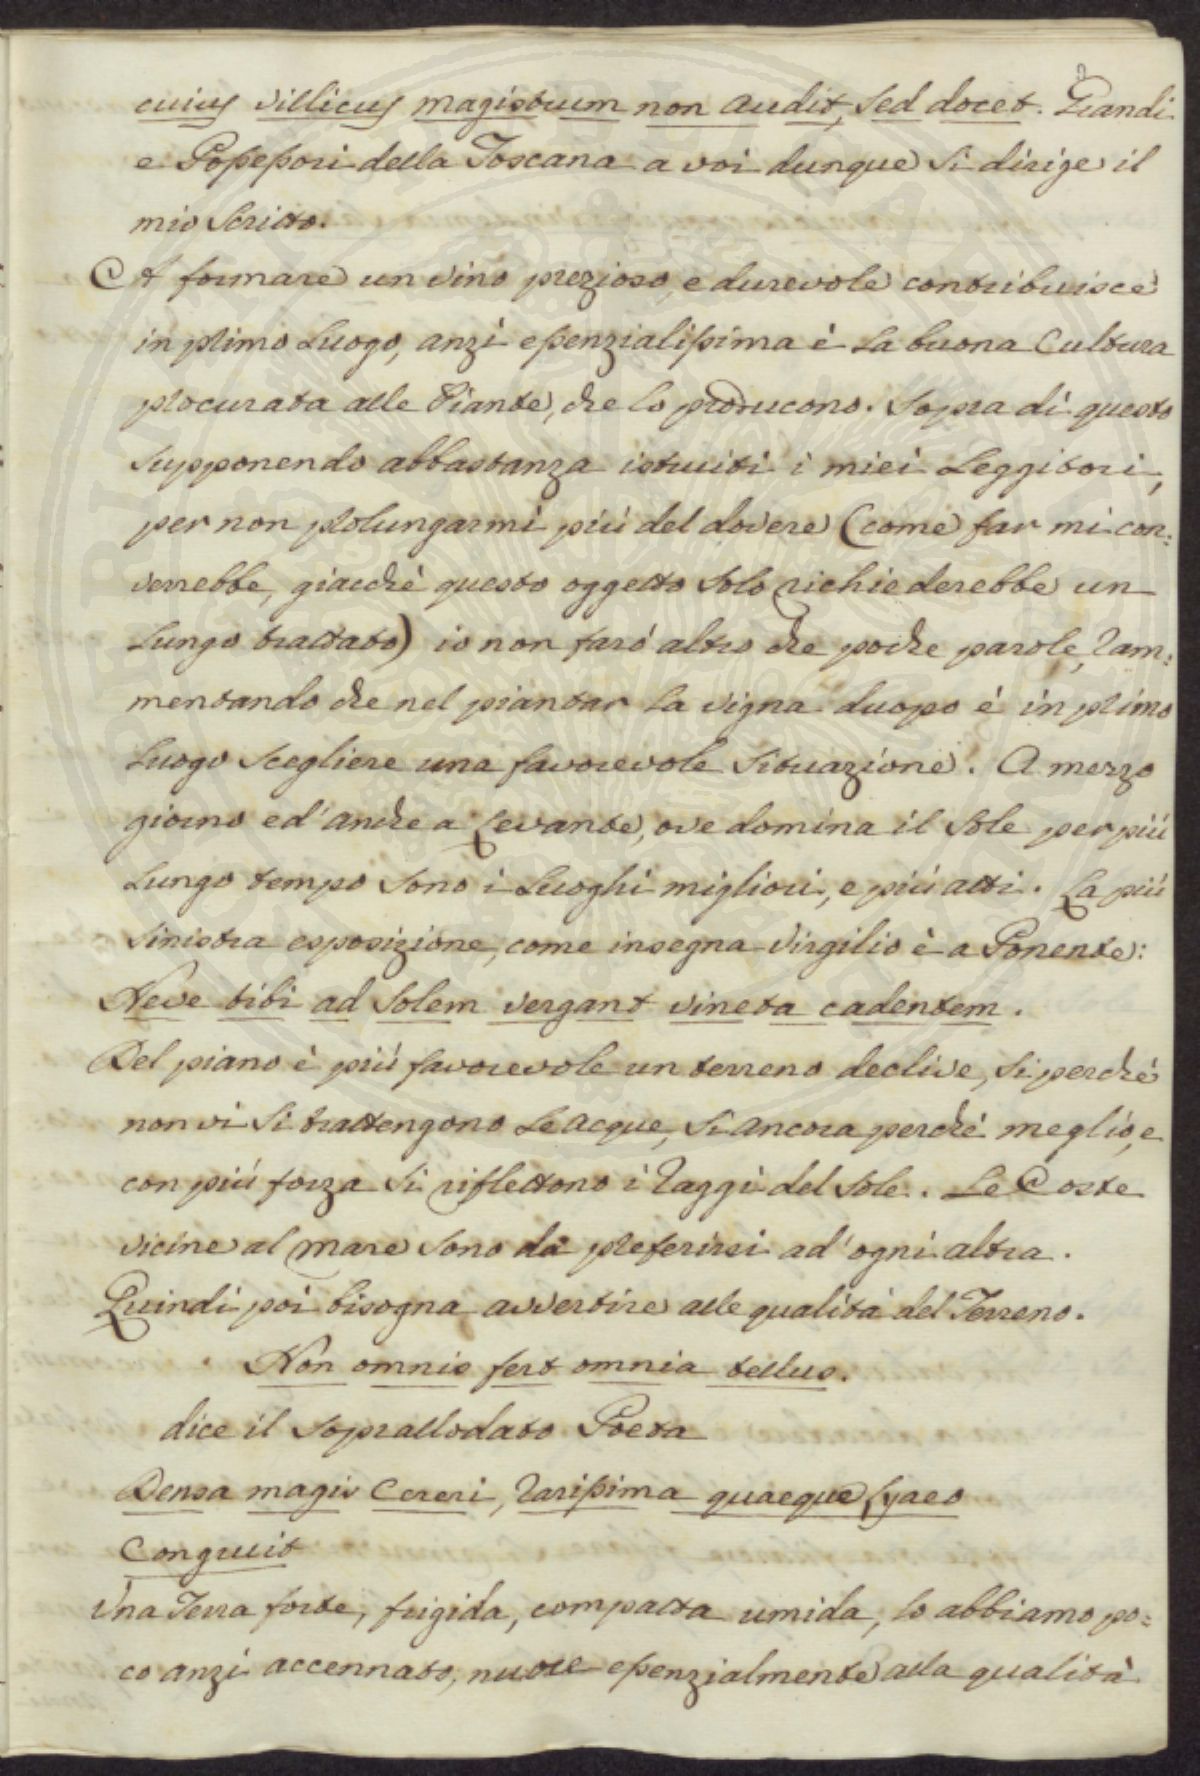 cuius villicus magistrum non audit, sed docet. Grandi
e Possessori della Toscana a voi dunque si dirige il
mio scritto.
A formare un vino prezioso, e durevole contribuisce
in primo luogo, anzi essenzialissima è la buona Cultura
procurata alle Piante, che lo producono. Sopra di questo
supponendo abbastanza istruiti i miei Leggitori,
per non prolungarmi più del dovere (come far mi con:
verrebbe, giacchè questo oggetto solo richiederebbe un
lungo trattato) io non farò altro che poche parole, ram:
mentando che nel piantar la vigna duopo è in primo
luogo scegliere una favorevole situazione. A mezzo
giorno ed' anche a Levante, ove domina il sole per più
lungo tempo sono i luoghi migliori, e più atti. La più
sinistra esposizione, come insegna Virgilio è a Ponente:
Neve tibi ad solem vergant vineta cadentem.
Del piano è più favorevole un terreno declive, si perchè
non vi si trattengono le acque, si ancora perchè meglio, e
con più forza si riflettono i raggi del sole. Le Coste
vicine al mare sono da preferirsi ad' ogni altra.
Quindi poi bisogna avvertire alle qualità del Terreno.
Non omnis fert omnia tellus.
dice il soprallodato Poeta
Densa magis Cereri, rarissima quaeque Lyaeo
Congruit
Una Terra forte, frigida, compatta umida, lo abbiamo po=
co anzi accennato, nuoce essenzialmente alla qualità